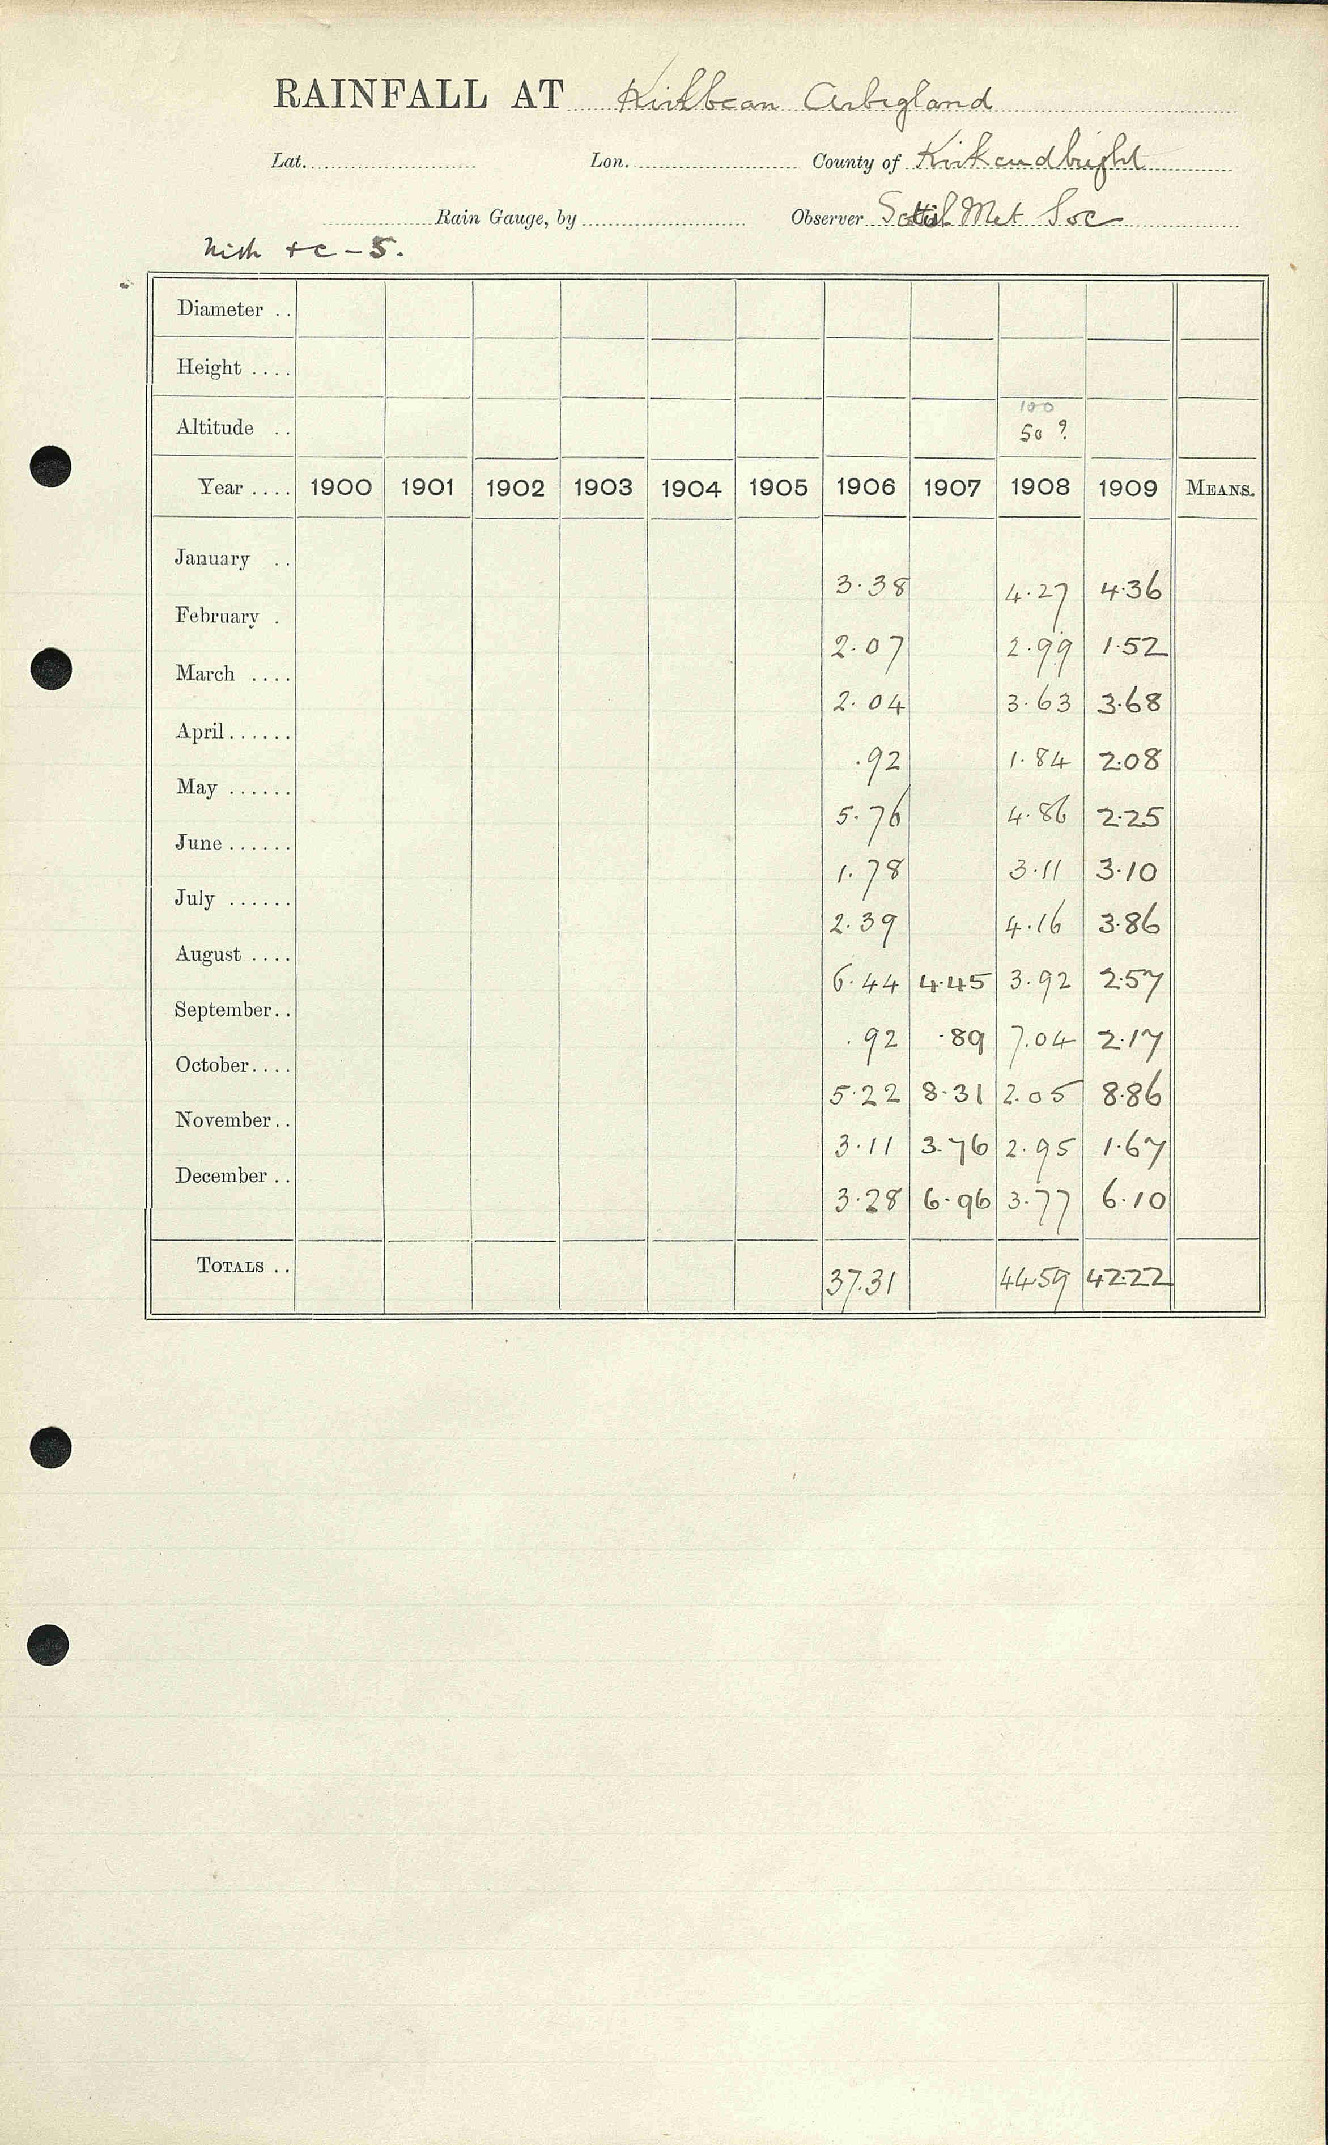 RAINFALL AT Kirkbean Arbigland
Lat. Lon. County of Kirkcudbright
Rain Gauge, by Observer Scottish Met Soc
Nith &c - 5.
Diameter ..
Height ....
100
Altitude .. 50 ?
Year .... 1900 1901 1902 1903 1904 1905 1906 1907 1908 1909 MEANS.
January .. 3.38 4.27 4.36
February . 2.07 2.99 1.52
March .... 2.04 3.63 3.68
April...... .92 1.84 2.08
May ...... 5.76 4.86 2.25
June ...... 1.78 3.11 3.10
July ...... 2.39 4.16 3.86
August .... 6.44 4.45 3.92 2.57
September.. .92 .89 7.04 2.17
October.... 5.22 8.31 2.05 8.86
November.. 3.11 3.76 2.95 1.67
December .. 3.28 6.96 3.77 6.10
TOTALS .. 37.31 44.59 42.22